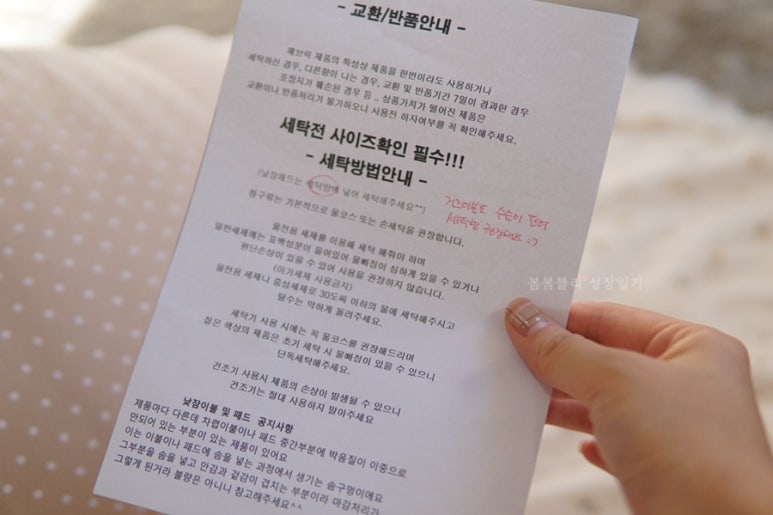 - 교환/반품안내 -
패브릭 제품의 특성상 제품을 한번이라도 사용하거나
세탁하신 경우, 다른향이 나는 경우, 교환 및 반품기간 7일이 경과한 경우
포장지가 훼손된 경우 등 .. 상품가치가 떨어진 제품은
교환이나 반품처리가 불가하오니 사용전 하자여부를 꼭 확인해주세요.
세탁전 사이즈확인 필수!!!
- 세탁방법안내 -
(낮잠패드는 세탁망에 넣어 세탁해주세요^^)
거즈이불도 수손이
세탁을 권장해요 :)
침구류는 기본적으로 울코스 또는 손세탁을 권장합니다.
울전용 세제를 이용해 세탁 해줘야 하며
일반세제에는 표백성분이 들어있어 물빠짐이 심하게 있을 수 있거나
원단손상이 있을 수 있어 사용을 권장하지 않습니다.
(아기세제 사용금지)
울전용 세제나 중성세제로 30도씨 이하의 물에 세탁해주시고
탈수는 약하게 돌려주세요.
세탁기 사용 시에는 꼭 울코스를 권장해드리며
짙은 색상의 제품은 초기 세탁 시 물빠짐이 있을 수 있으니
단독세탁해주세요.
건조기 사용시 제품의 손상이 발생될 수 있으니
건조기는 절대 사용하지 말아주세요
낮잠이불 및 패드 공지사항
제품마다 다른데 차렵이불이나 패드 중간부분에 박음질이 이중으로
안되어 있는 부분이 있는 제품이 있어요
이는 이불이나 패드에 솜을 넣는 과정에서 생기는 솜구멍이에요
그부분을 솜을 넣고 안감과 겉감이 겹치는 부분이라 마감처리가
그렇게 된거라 불량은 아니니 참고해주세요^^
봄봄블리♥성장일기